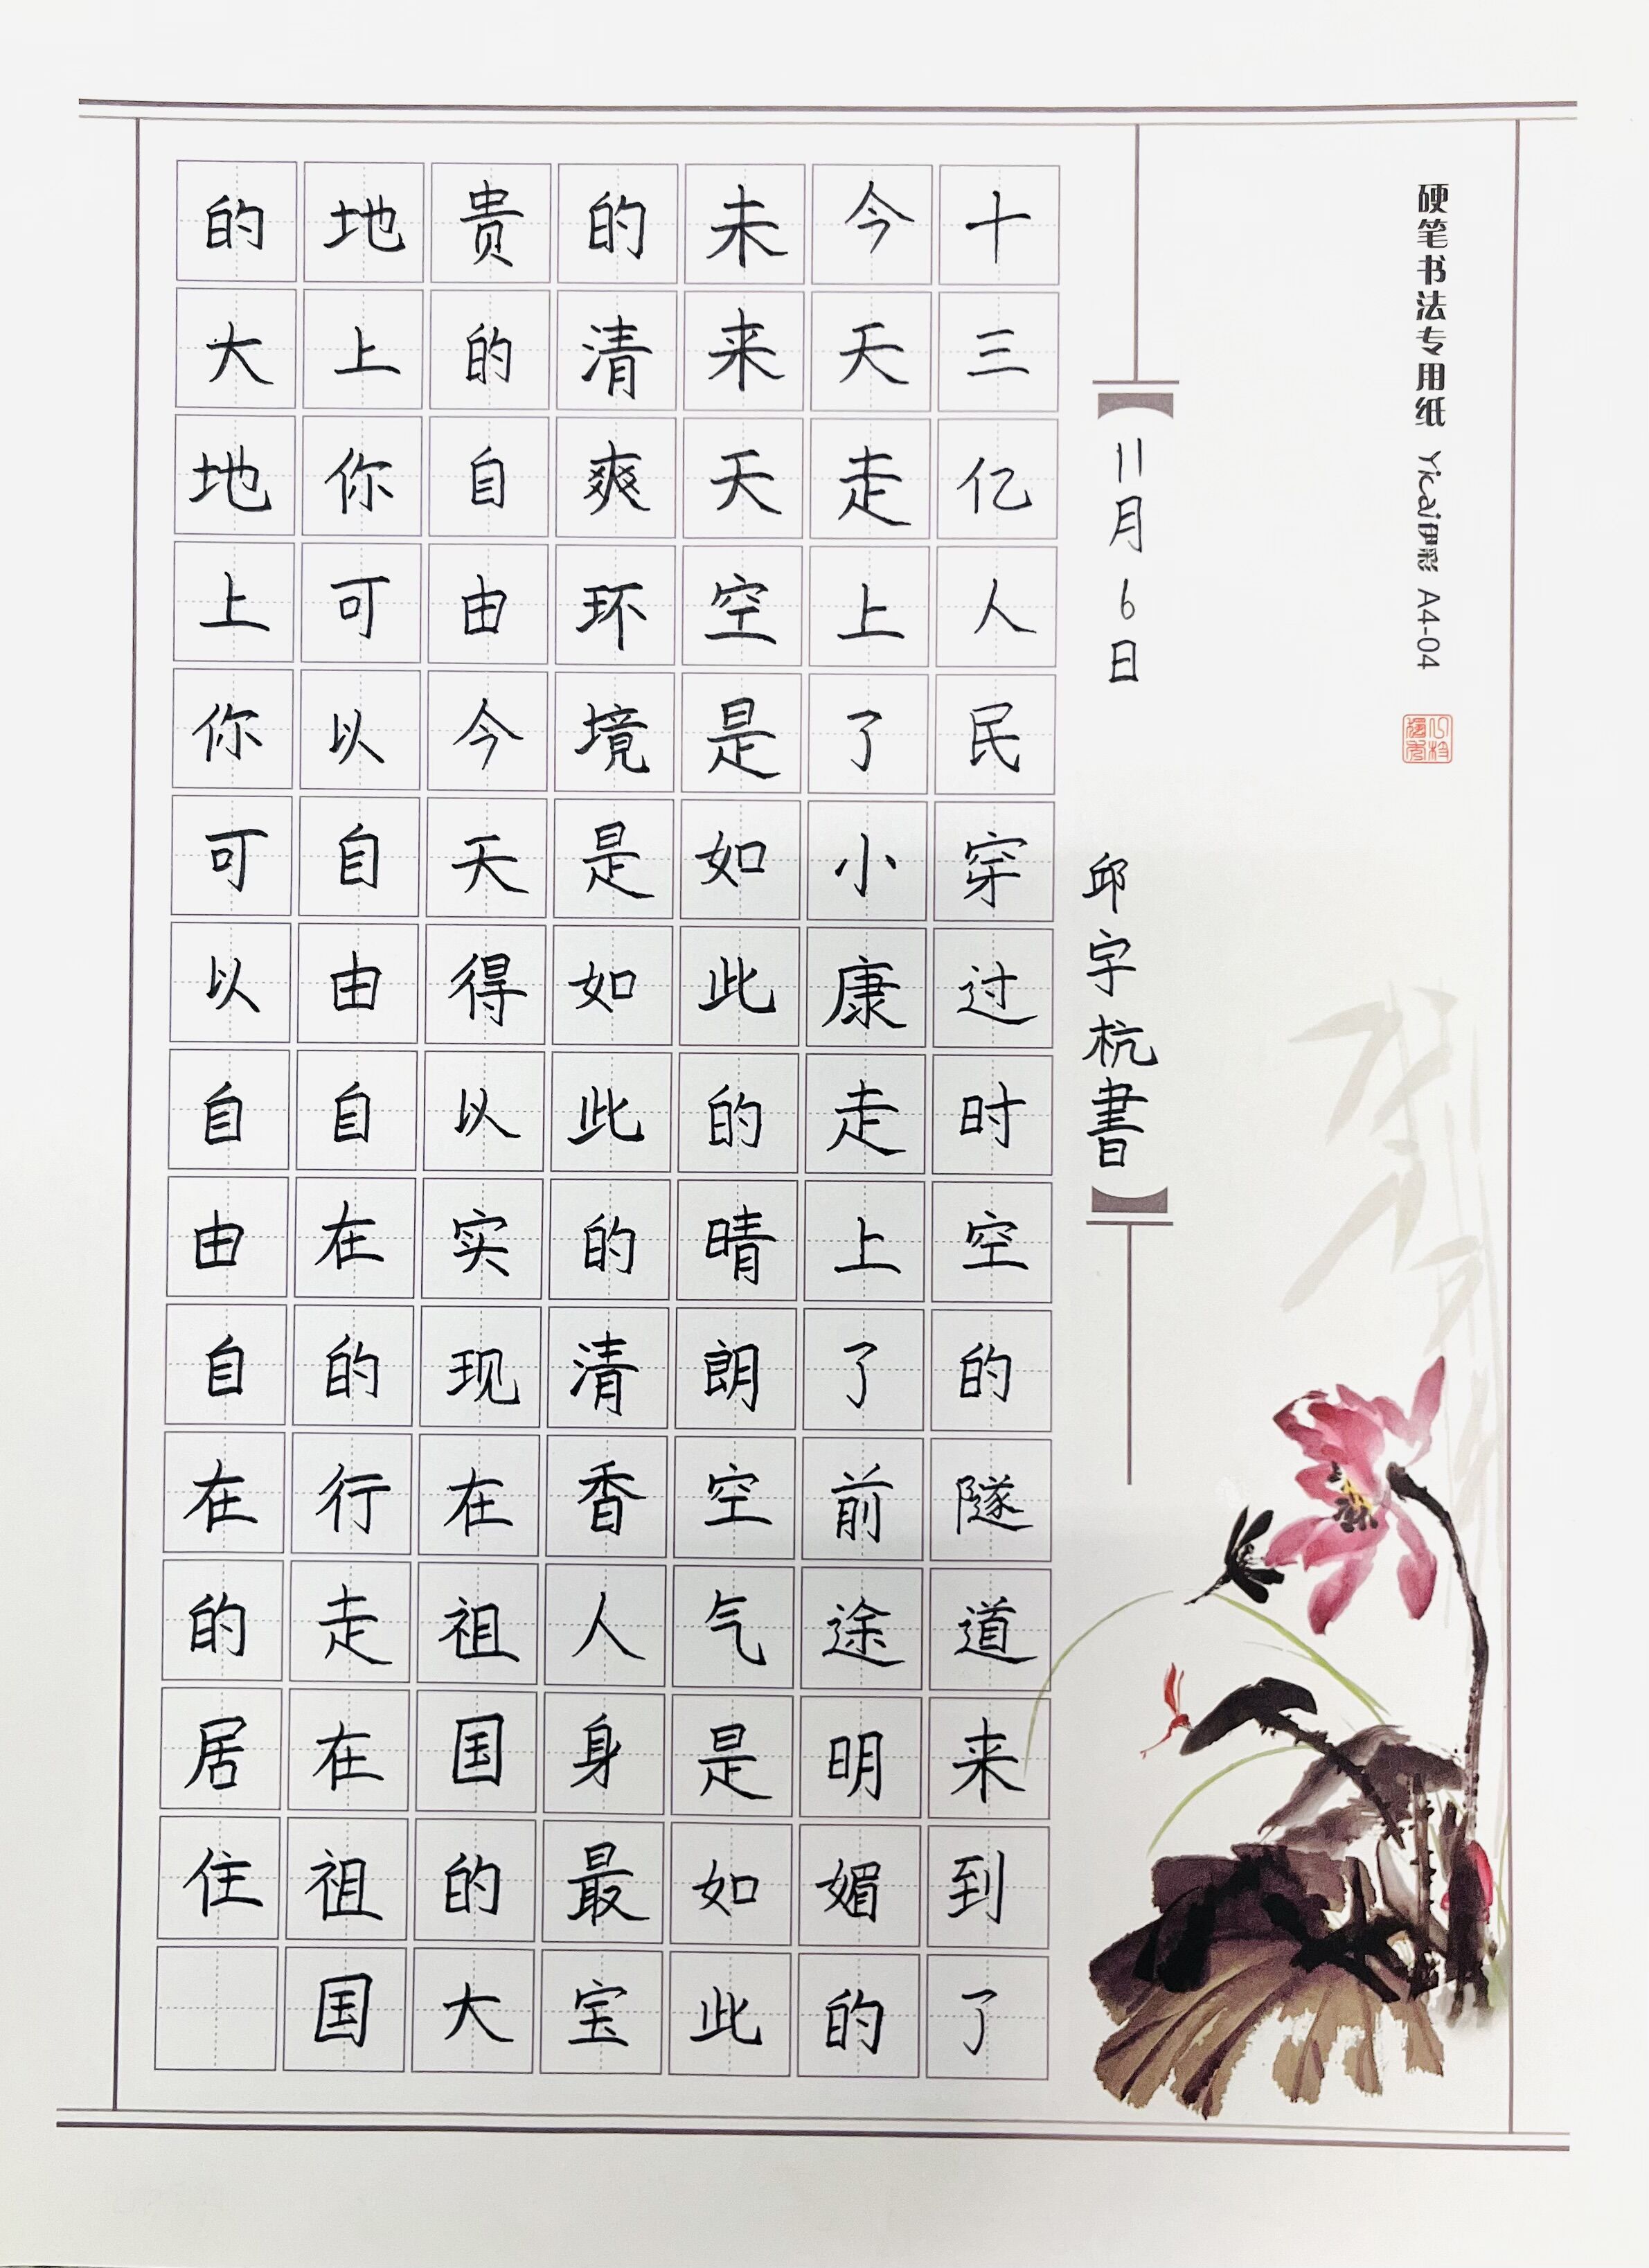 硬笔书法专用纸 Yicai伊彩 A4-04
11月6日 邱宇杭書
十三亿人民穿过时空的隧道来到了
今天走上了小康走上了前途明媚的
未来天空是如此的晴朗空气是如此
的清爽环境是如此的清香人身最宝
贵的自由今天得以实现在祖国的大
地上你可以自由自在的行走在祖国
的大地上你可以自由自在的居住